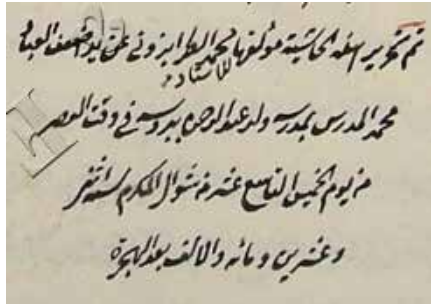 تم تحرير هذه الحاشية لمؤلفها محمد الطرابزوني عن يد أضعف العباد
للأستاذ
محمد المدرس بمدرسة ولد عبد الرحمن ببروسه في وقت العصر
من يوم الخميس التاسع عشر من شوال المكرم لسنة اثنتى
وعشرين ومائه والالف بعد الهجرة